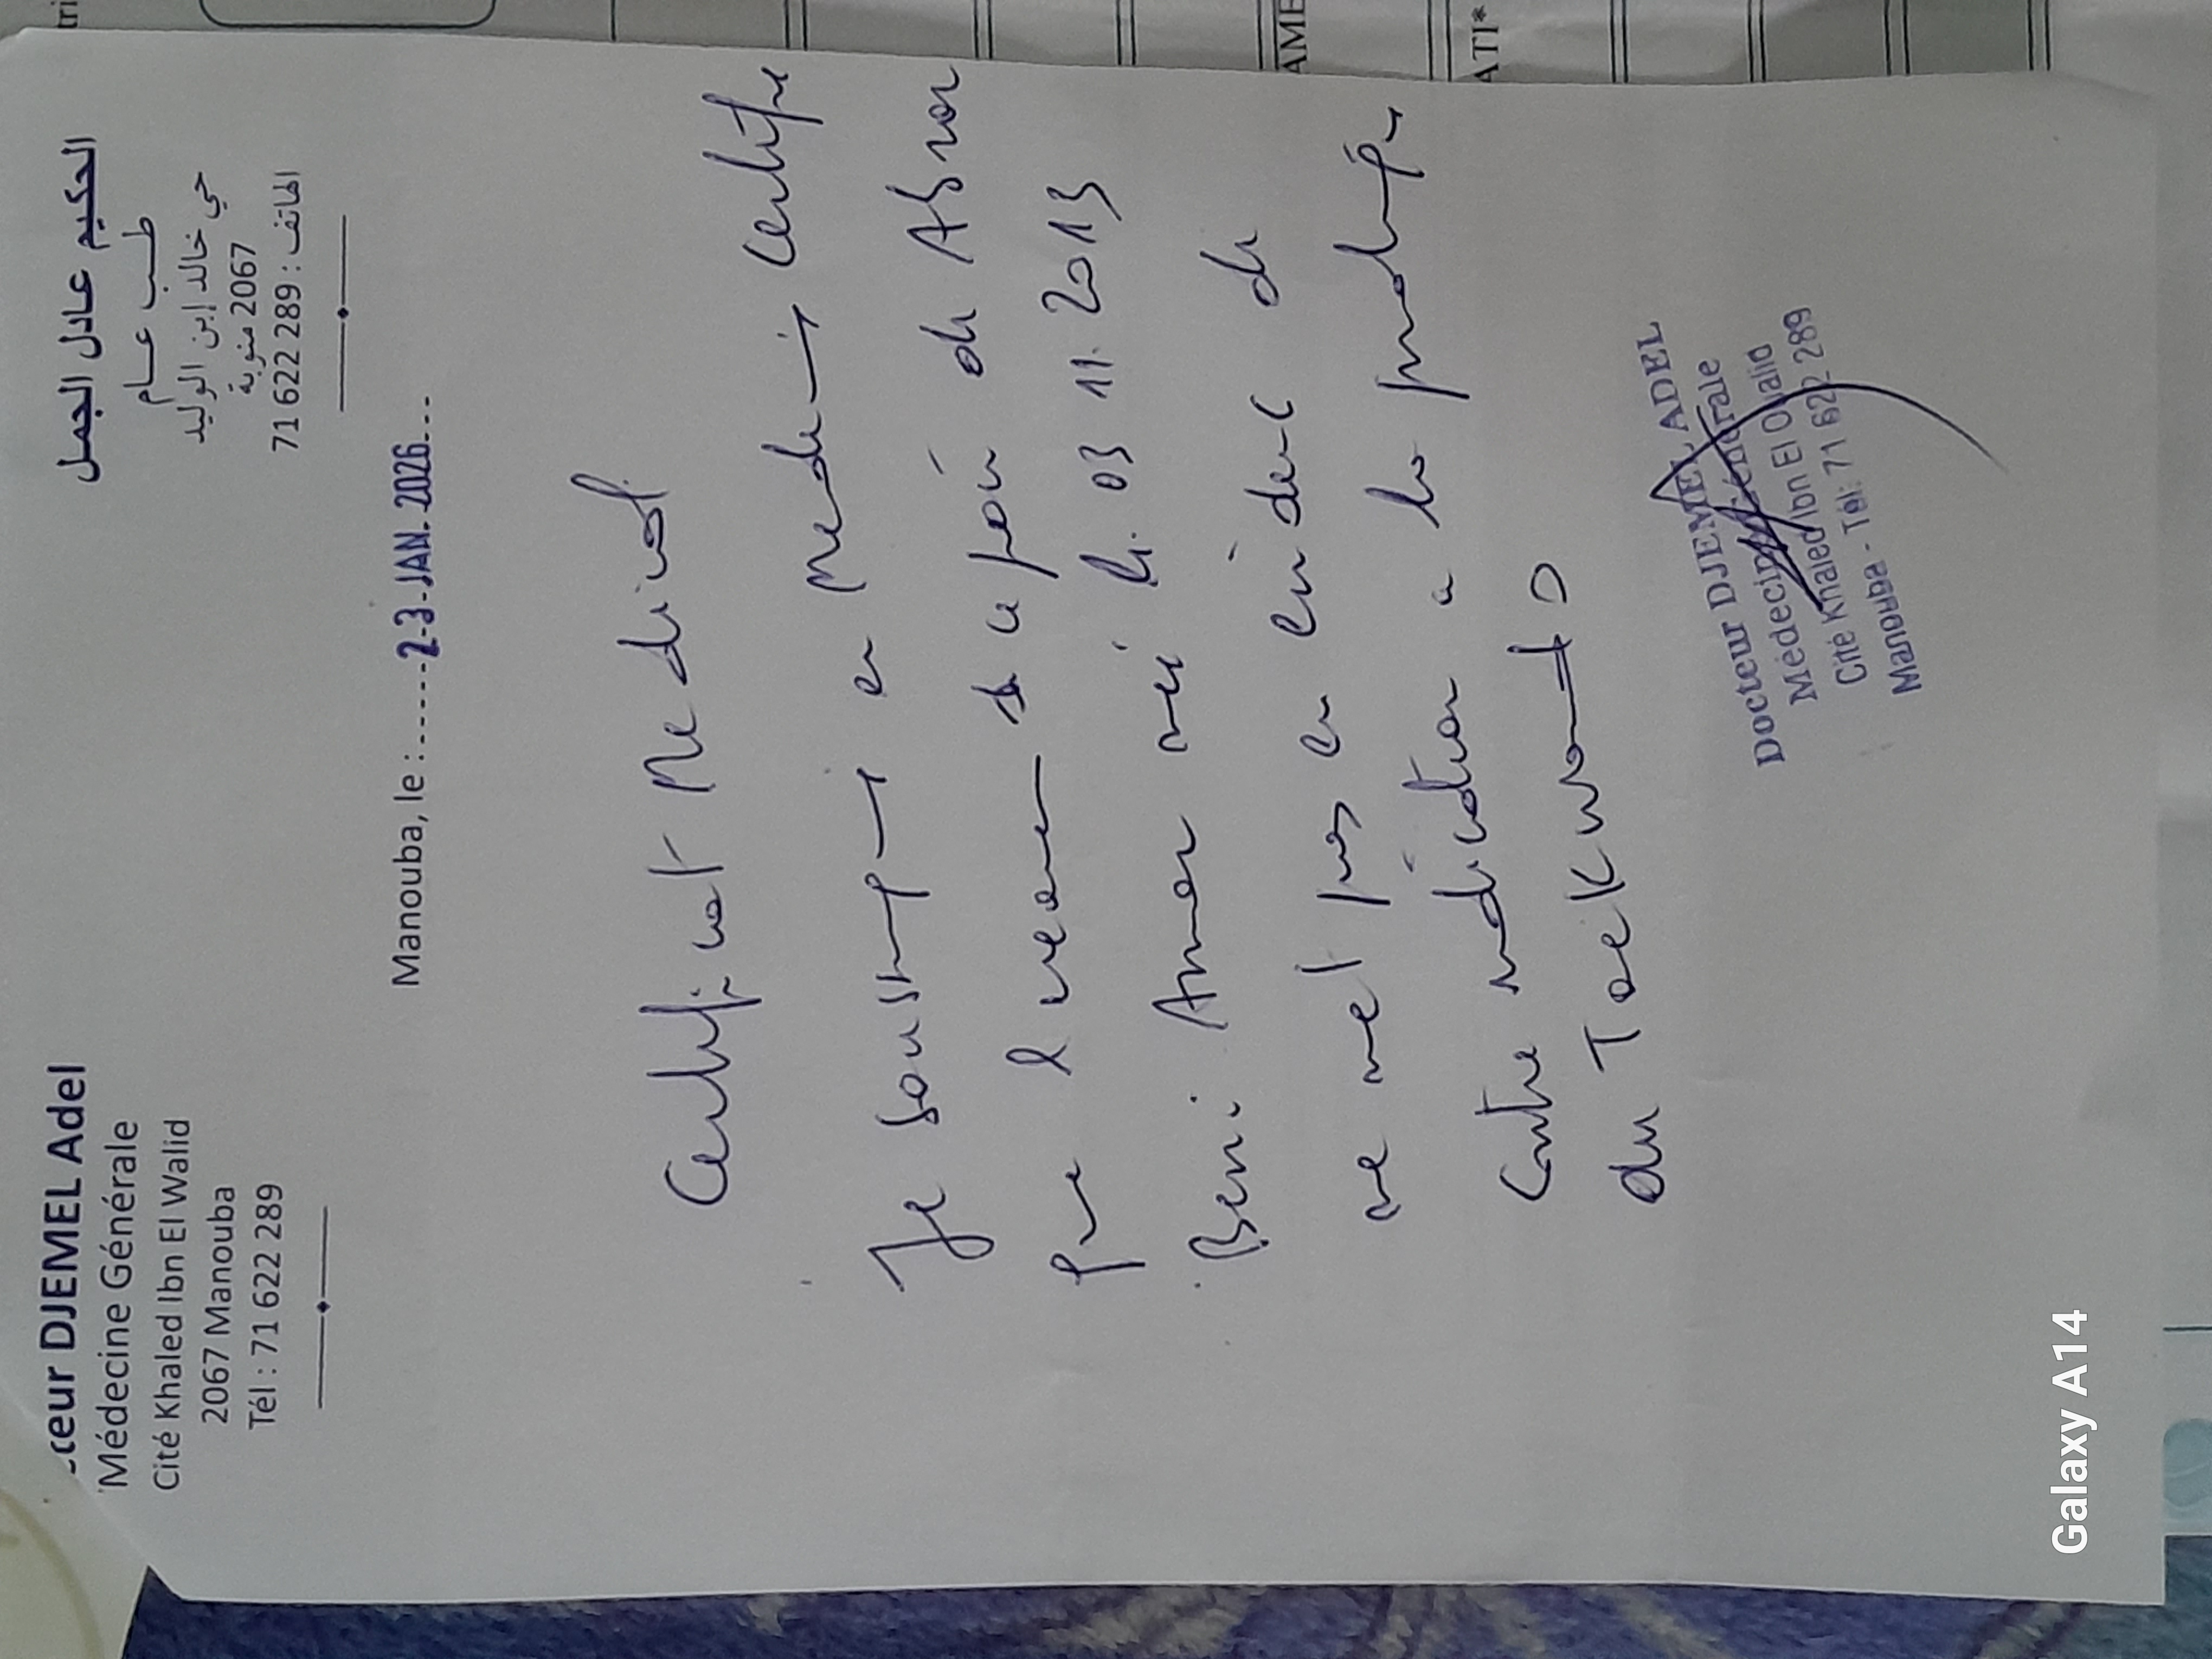 cteur DJEMEL Adel
Médecine Générale
Cité Khaled Ibn El Walid
2067 Manouba
Tél : 71 622 289
الحكيم عادل الجمل
طب عام
حي خالد إبن الوليد
2067 منوبة
الهاتف : 289 622 71
Manouba, le : 23 JAN. 2026
Certificat Médical
Je soussigné en Médecine certifie
que l'examen de ce jour de
Beni Amor né le 03 11. 2013
ne met pas en évidence de
contre indication a la pratique
du Taekwondo
Docteur DJEMEL ADEL
Médecine Générale
Cité Khaled Ibn El Oualid
Manouba - Tél: 71 622 289
AME
ATI*
tri
Galaxy A14